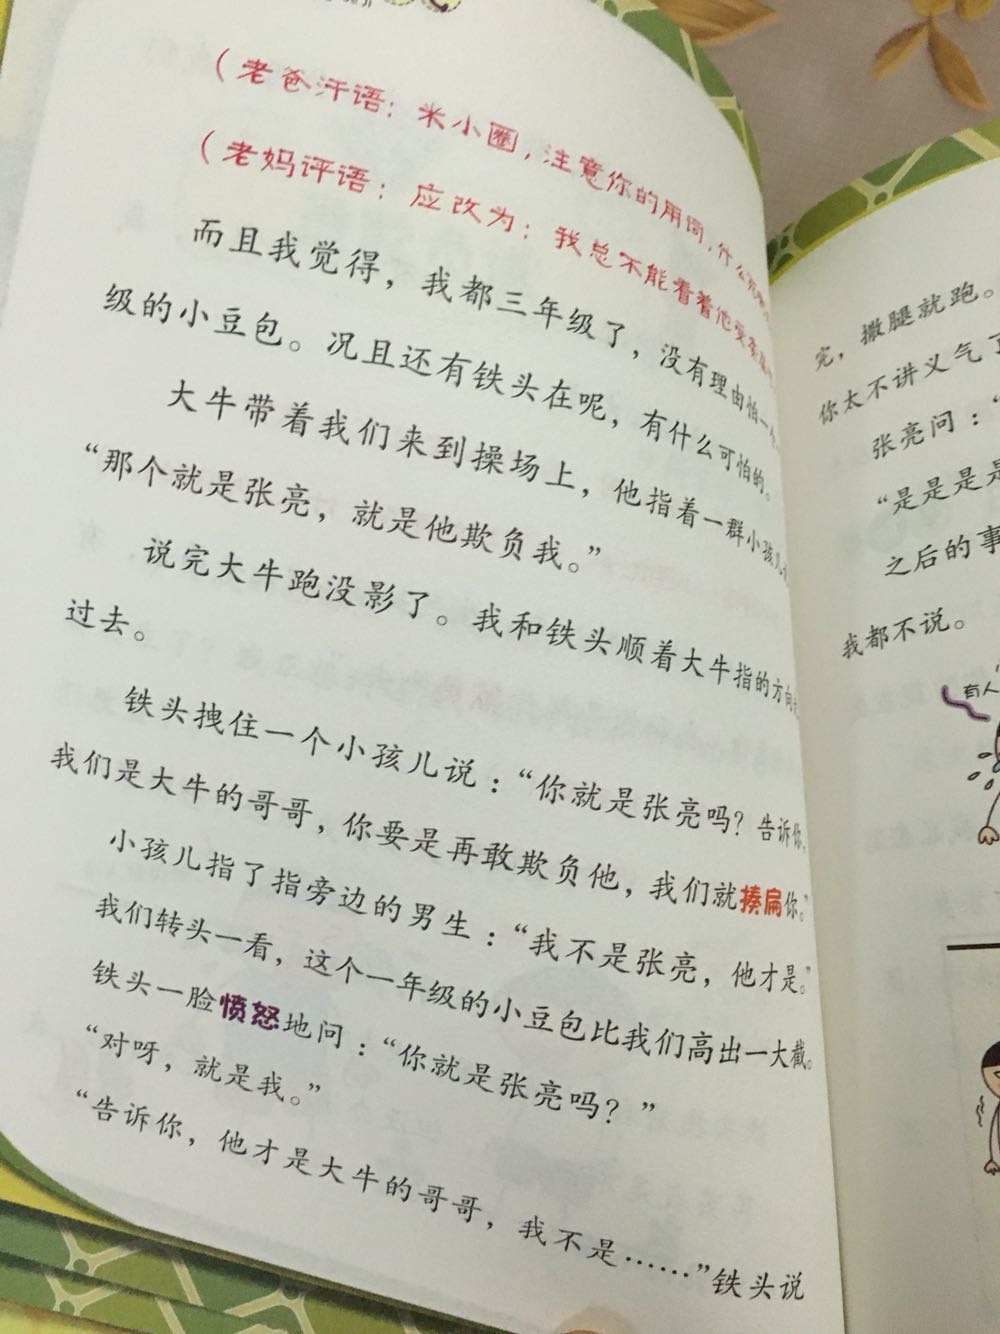 （老爸评语：米小圈，注意你的用词，什么
（老妈评语：应改为：我总不能看着他受
而且我觉得，我都三年级了，没有理由怕一个
级的小豆包。况且还有铁头在呢，有什么可怕的。
大牛带着我们来到操场上，他指着一群小孩儿
“那个就是张亮，就是他欺负我。”
说完大牛跑没影了。我和铁头顺着大牛指的方向
过去。
铁头拽住一个小孩儿说：“你就是张亮吗？告诉你，
我们是大牛的哥哥，你要是再敢欺负他，我们就揍扁你。”
小孩儿指了指旁边的男生：“我不是张亮，他才是。”
我们转头一看，这个一年级的小豆包比我们高出一大截。
铁头一脸愤怒地问：“你就是张亮吗？”
“对呀，就是我。”
“告诉你，他才是大牛的哥哥，我不是……”铁头说
完，撒腿就跑。
你太不讲义气了
张亮问：“
“是是是是
之后的事
我都不说。
有人